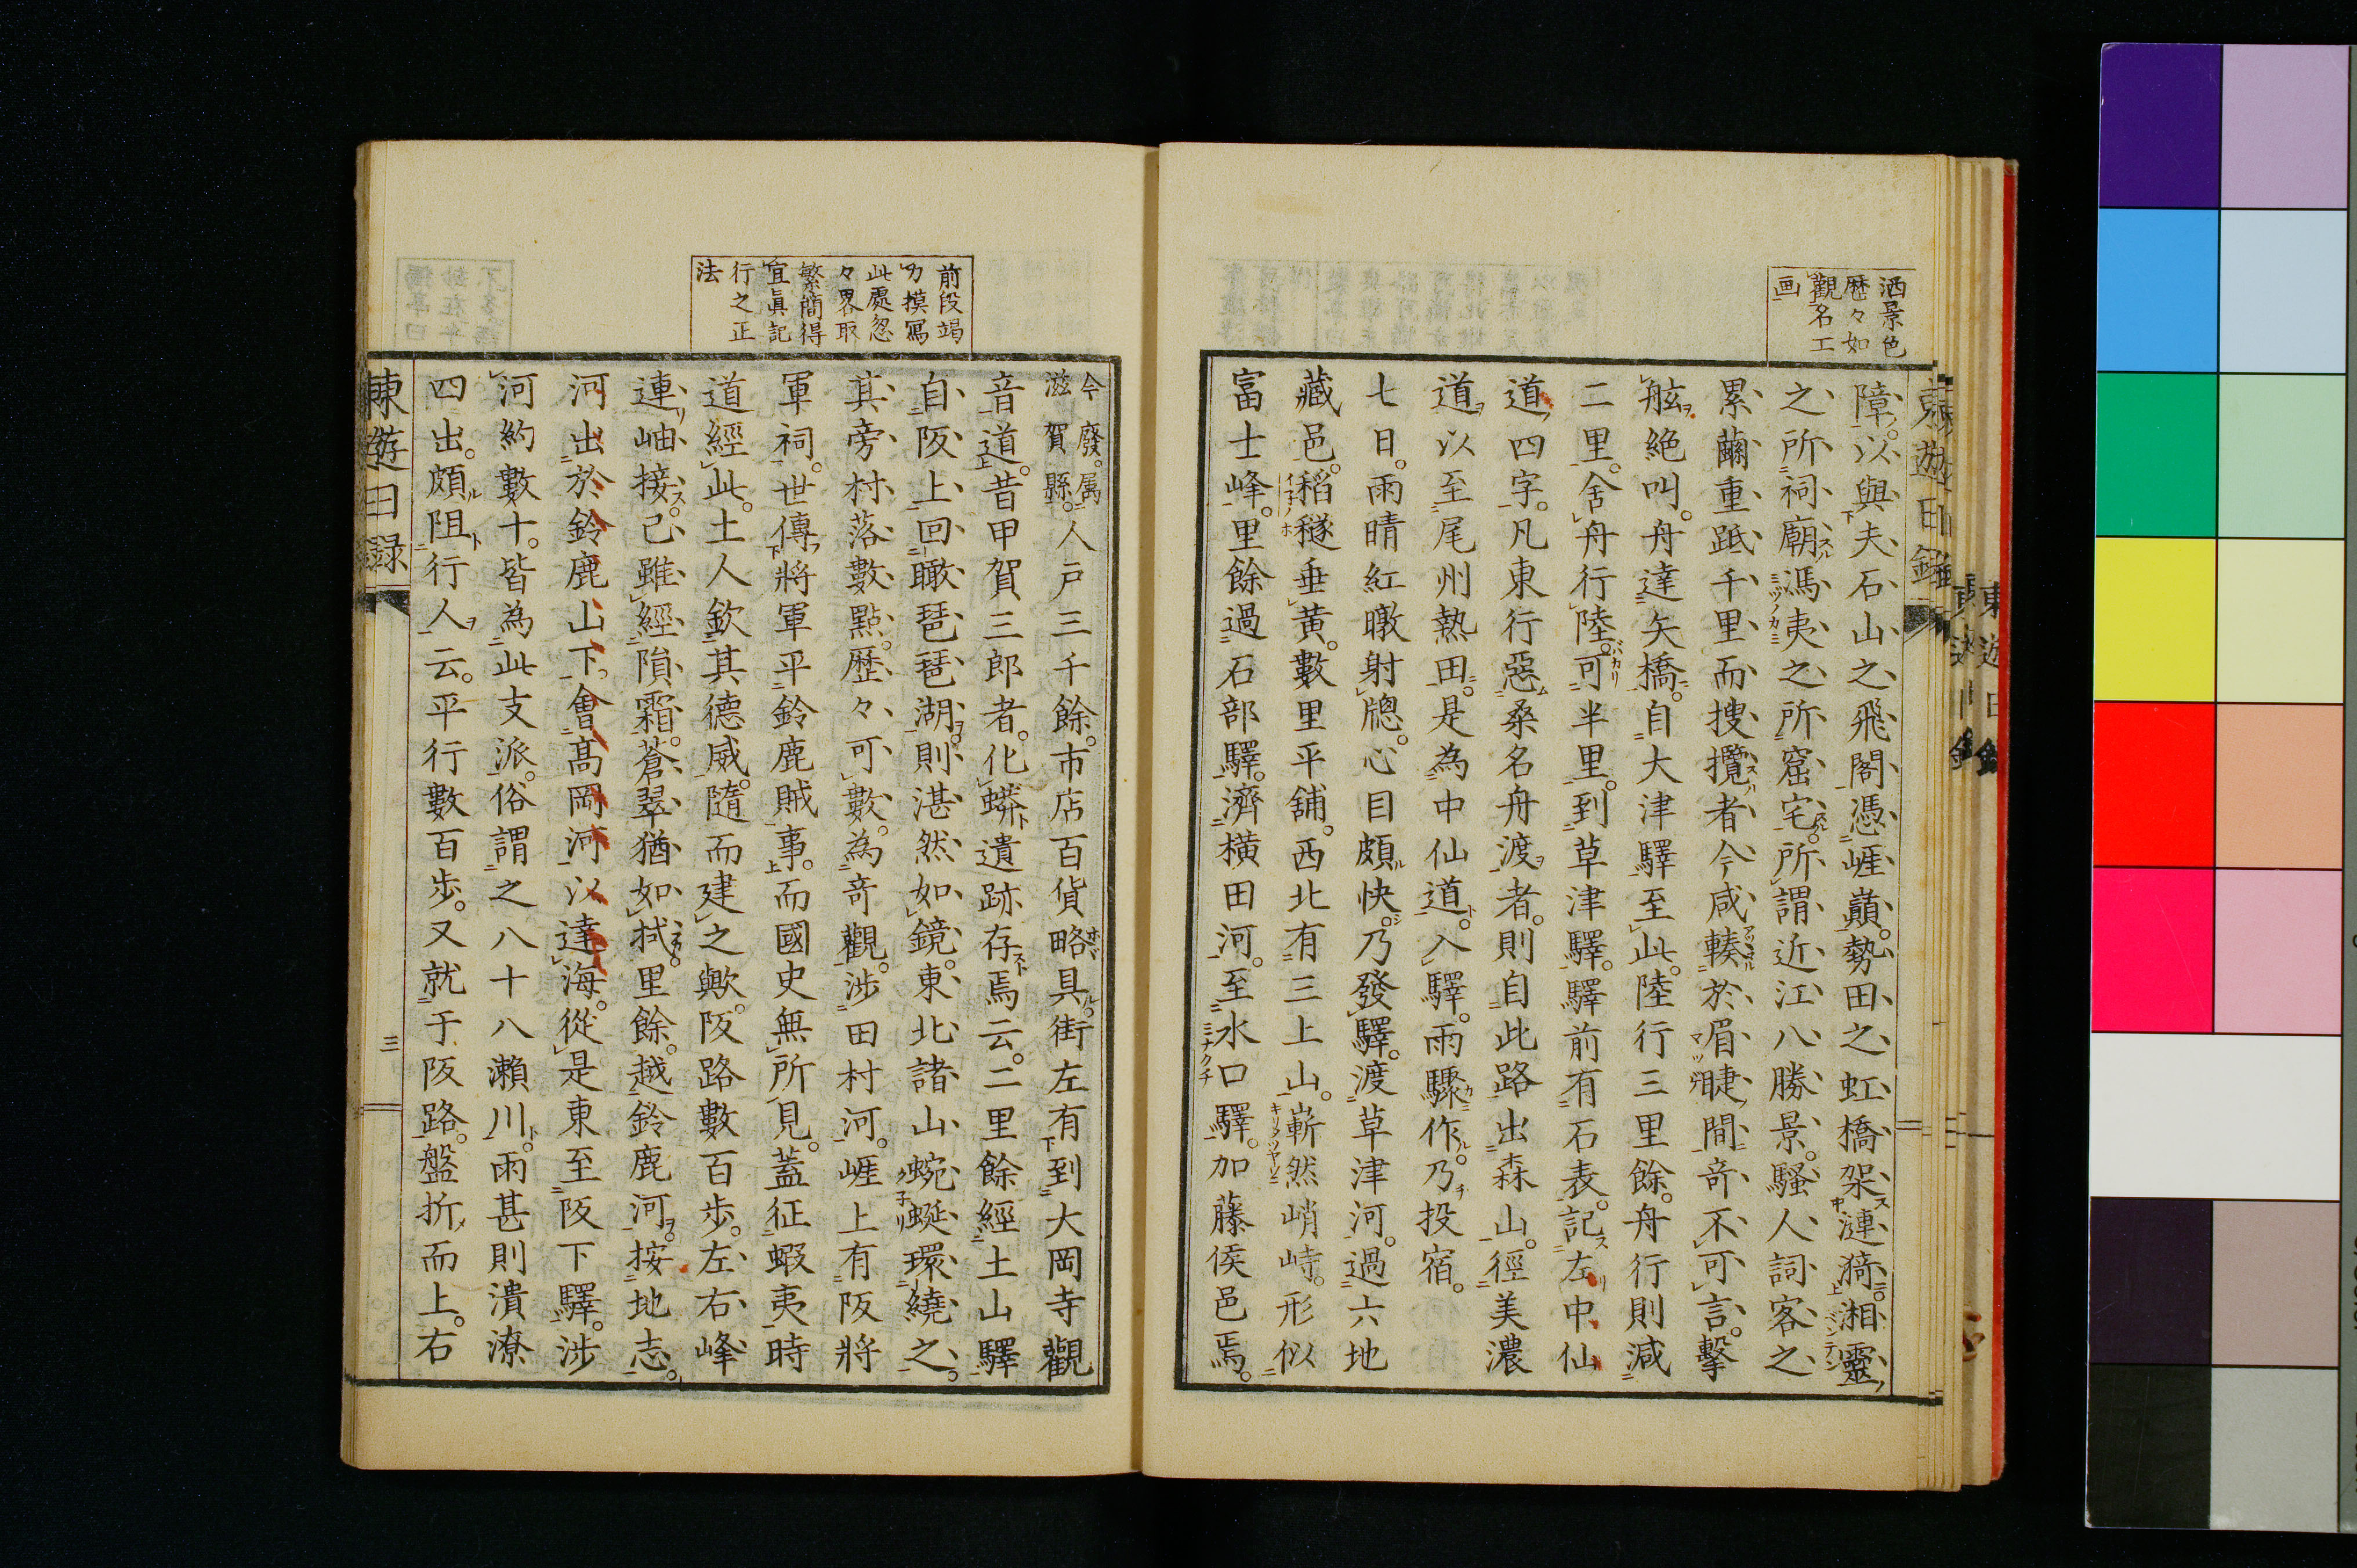 洒景色
歴々如
觀名工
画
東遊日録
障。以與夫石山之飛閣憑崕巓。勢田之虹橋架漣漪。湘靈
之所祠廟。馮夷之所窟宅。所謂近江八勝景。騷人詞客之
累繭重跡千里而捜攬者今咸輳於眉睫間奇不可言。擊
舷絶叫。舟達矢橋。自大津驛至此。陸行三里餘。舟行則減
二里。舍舟行陸可半里。到草津驛。驛前有石表。記左中仙
道四字。凡東行惡桑名舟渡者。則自此路出森山。徑美濃
道以至尾州熱田。是為中仙道。入驛。雨驟作。乃投宿。
七日。雨晴紅暾射牕。心目頗快。乃發驛。渡草津河。過六地
藏邑。稻穟垂黄。數里平舖。西北有三上山。嶄然峭峙。形似
富士峰。里餘過石部驛。濟橫田河。至水口驛。加藤侯邑焉。
前段竭
力摸寫
此處忽
々畧取
繁簡得
宜眞記
行之正
法
今廢。属
滋賀縣。
人戸三千餘。市店百貨略具。街左有到大岡寺觀
音道。昔甲賀三郎者。化蟒遺跡存焉云。二里餘經土山驛
自阪上回瞰琶琶湖。則湛然如鏡。東北諸山蜿蜒環繞之。
其旁村落數點。歴々可數。為奇觀。涉田村河。崕上有阪將
軍祠。世傳將軍平鈴鹿賊事。而國史無所見。蓋征蝦夷時
道經此。土人欽其德威。隨而建之歟。阪路數百歩。左右峰
連岫接。已雖經隕霜。蒼翠猶如拭。里餘。越鈴鹿河。按地志。
河出於鈴鹿山下。會髙岡河以達海。從是東至阪下驛。涉
河約數十。皆為此支派。俗謂之八十八瀬川。雨甚則潰潦
四出。頗阻行人云。平行數百歩。又就于阪路。盤折而上。右
東遊日録
三